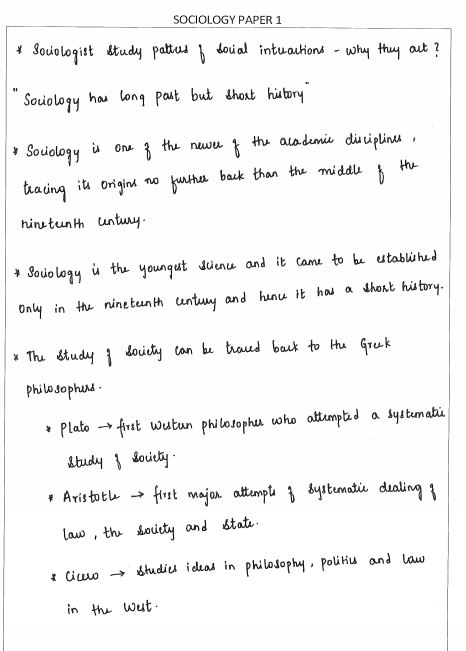 SOCIOLOGY PAPER 1
* Sociologist study patters of social interactions - why they act?
"Sociology has long past but short history"
* Sociology is one of the newer of the academic disciplines,
tracing its origins no further back than the middle of the
nineteenth century.
* Sociology is the youngest science and it came to be established
only in the nineteenth century and hence it has a short history.
* The study of society can be traced back to the Greek
philosophers.
* Plato → first western philosopher who attempted a systematic
study of society.
* Aristotle → first major attempts of systematic dealing of
law, the society and state.
* Cicero → studies ideas in philosophy, politics and law
in the west.